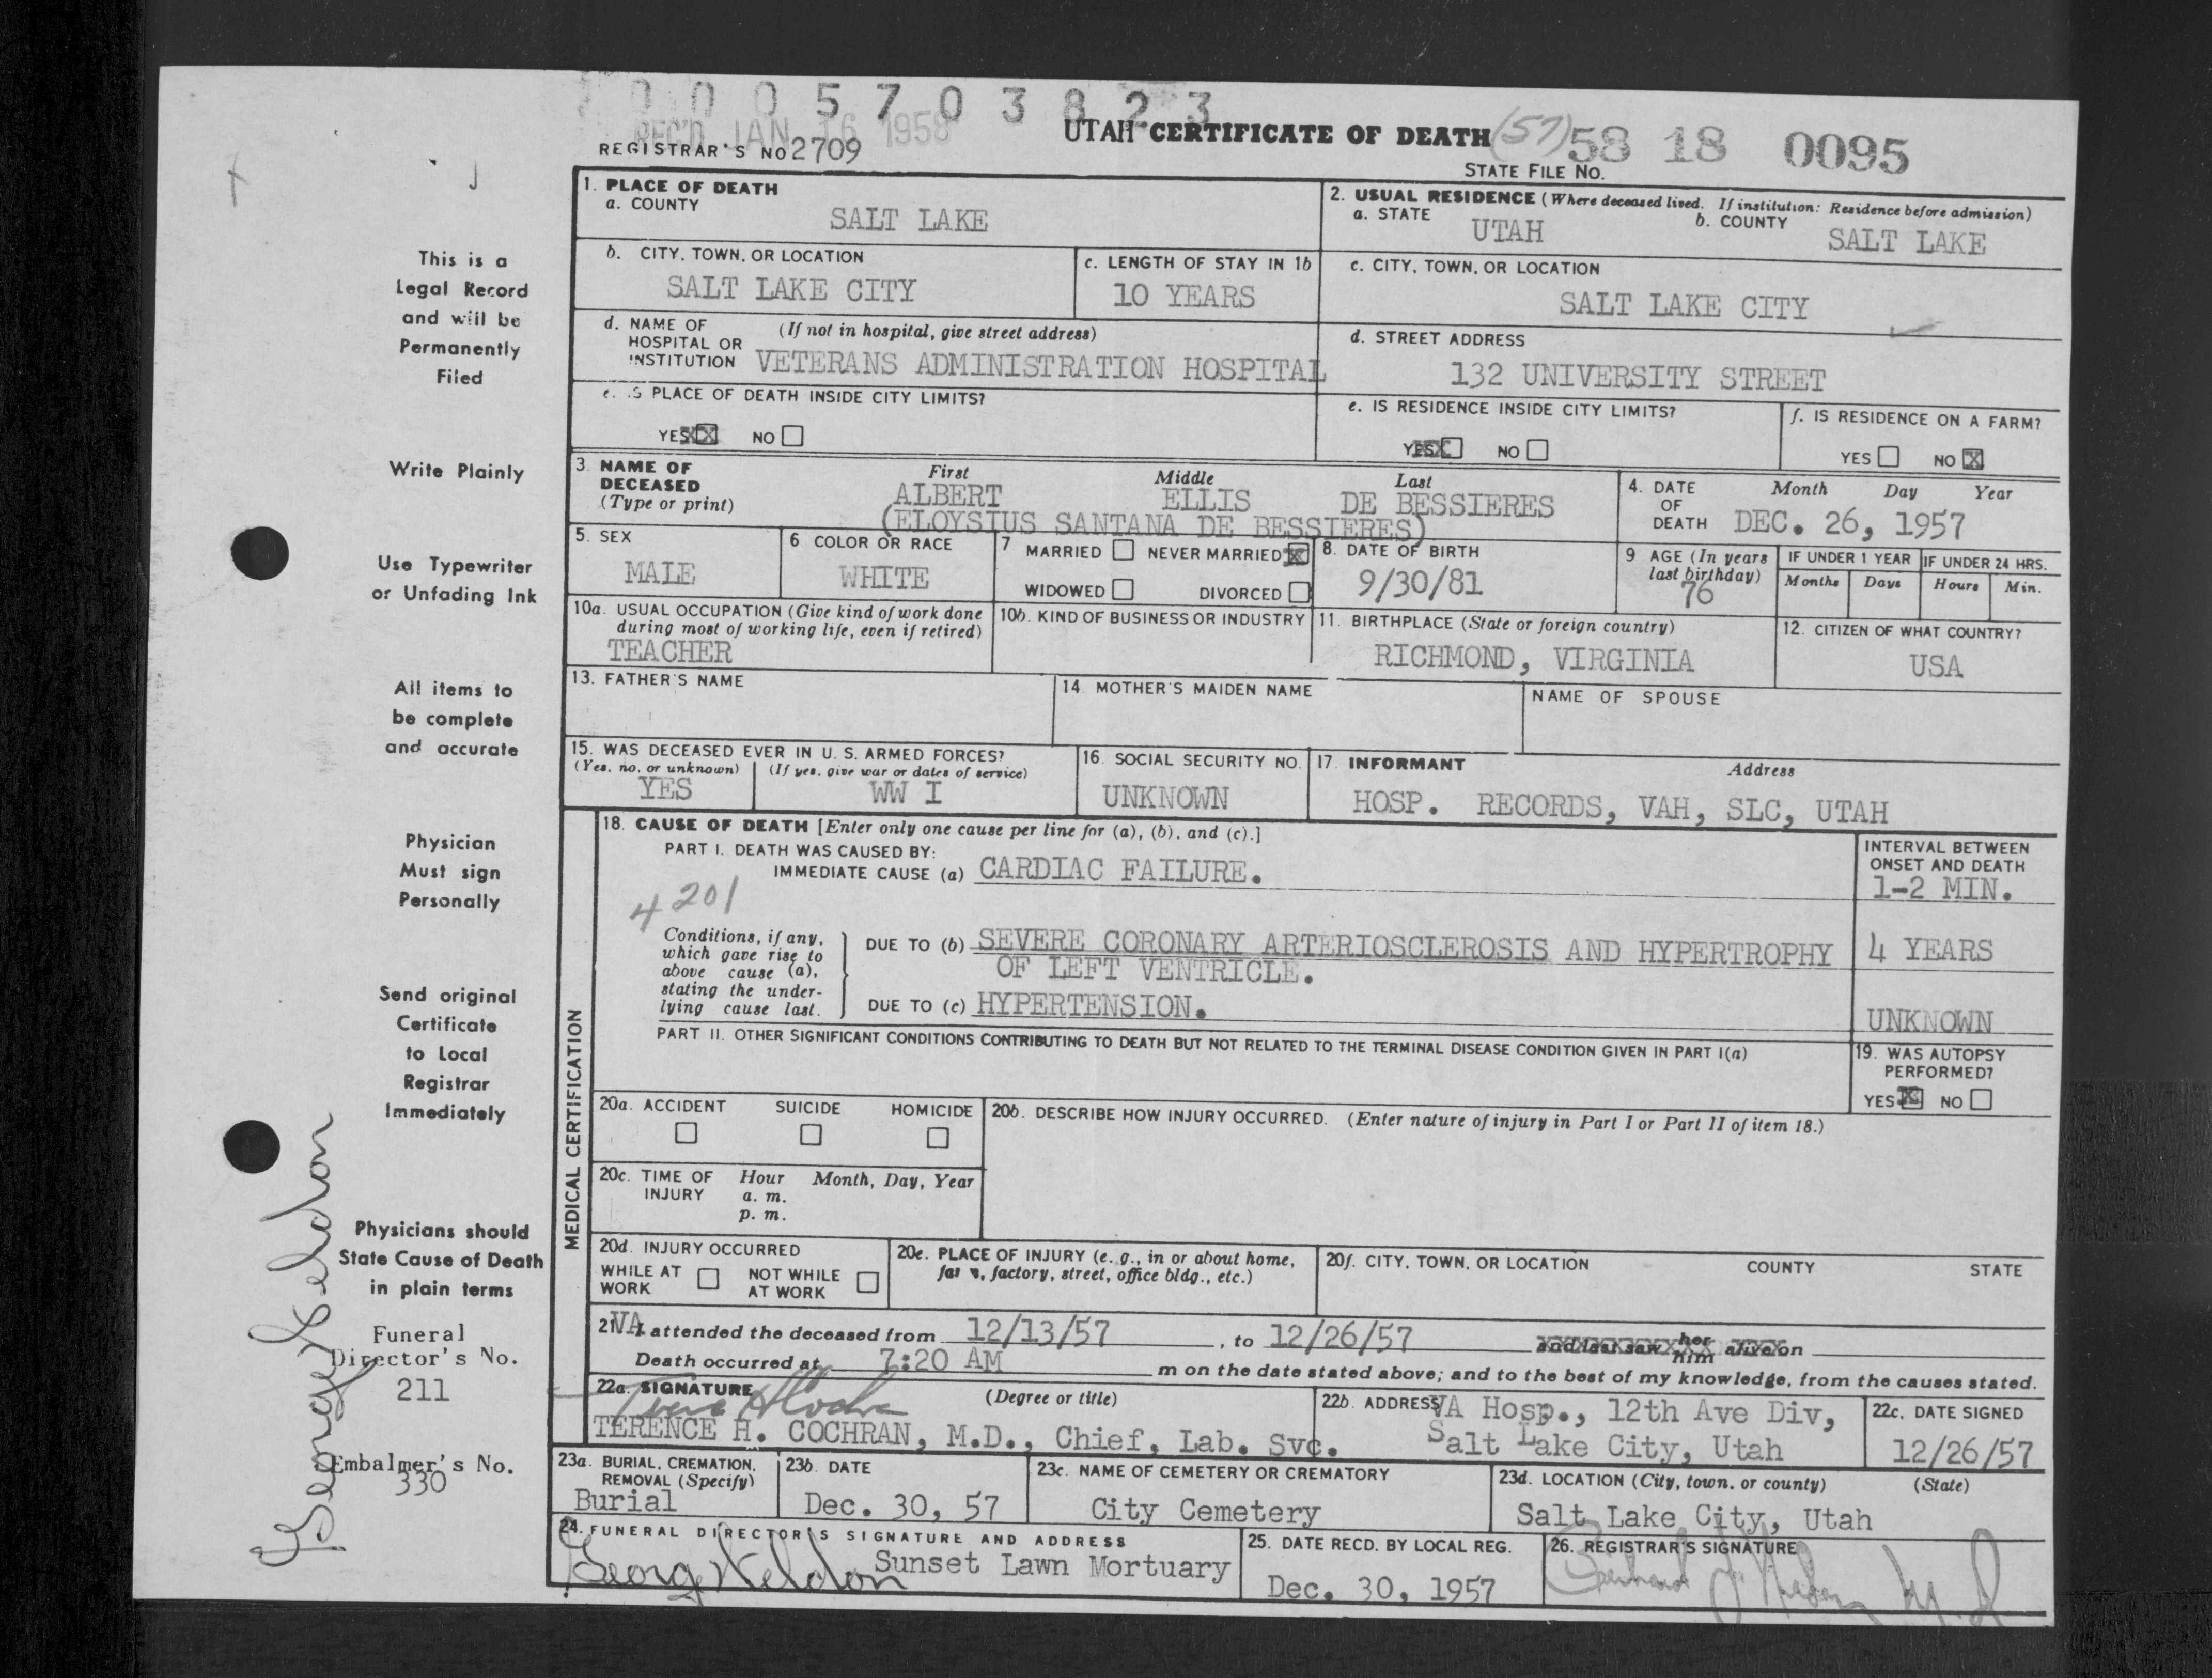 0 0 0 5 7 0 3 8 2 3
REC'D JAN 16 1958
UTAH CERTIFICATE OF DEATH (57) 58 18 0095
REGISTRAR'S NO 2709
STATE FILE NO.
1. PLACE OF DEATH
a. COUNTY
SALT LAKE
2. USUAL RESIDENCE (Where deceased lived. If institution: Residence before admission)
a. STATE
UTAH
b. COUNTY
SALT LAKE
b. CITY, TOWN, OR LOCATION
SALT LAKE CITY
c. LENGTH OF STAY IN 1b
10 YEARS
c. CITY, TOWN, OR LOCATION
SALT LAKE CITY
d. NAME OF HOSPITAL OR INSTITUTION
(If not in hospital, give street address)
VETERANS ADMINISTRATION HOSPITAL
d. STREET ADDRESS
132 UNIVERSITY STREET
e. IS PLACE OF DEATH INSIDE CITY LIMITS?
YES XX NO
e. IS RESIDENCE INSIDE CITY LIMITS?
YES X NO
f. IS RESIDENCE ON A FARM?
YES NO X
3. NAME OF DECEASED
(Type or print)
First Middle Last
ALBERT ELLIS DE BESSIERES
(ELOYSIUS SANTANA DE BESSIERES)
4. DATE OF DEATH
Month Day Year
DEC. 26, 1957
5. SEX
MALE
6 COLOR OR RACE
WHITE
7 MARRIED NEVER MARRIED X
WIDOWED DIVORCED
8. DATE OF BIRTH
9/30/81
9 AGE (In years last birthday)
76
IF UNDER 1 YEAR
Months Days
IF UNDER 24 HRS.
Hours Min.
10a. USUAL OCCUPATION (Give kind of work done during most of working life, even if retired)
TEACHER
10b. KIND OF BUSINESS OR INDUSTRY
11. BIRTHPLACE (State or foreign country)
RICHMOND, VIRGINIA
12. CITIZEN OF WHAT COUNTRY?
USA
13. FATHER'S NAME
14. MOTHER'S MAIDEN NAME
NAME OF SPOUSE
15. WAS DECEASED EVER IN U. S. ARMED FORCES?
(Yes, no, or unknown) (If yes, give war or dates of service)
YES WW I
16. SOCIAL SECURITY NO.
UNKNOWN
17. INFORMANT Address
HOSP. RECORDS, VAH, SLC, UTAH
MEDICAL CERTIFICATION
18. CAUSE OF DEATH [Enter only one cause per line for (a), (b), and (c).]
PART I. DEATH WAS CAUSED BY:
IMMEDIATE CAUSE (a) CARDIAC FAILURE.
INTERVAL BETWEEN ONSET AND DEATH
1-2 MIN.
4201
Conditions, if any,
which gave rise to
above cause (a),
stating the under-
lying cause last.
DUE TO (b) SEVERE CORONARY ARTERIOSCLEROSIS AND HYPERTROPHY
OF LEFT VENTRICLE.
4 YEARS
DUE TO (c) HYPERTENSION.
UNKNOWN
PART II. OTHER SIGNIFICANT CONDITIONS CONTRIBUTING TO DEATH BUT NOT RELATED TO THE TERMINAL DISEASE CONDITION GIVEN IN PART I(a)
19. WAS AUTOPSY PERFORMED?
YES X NO
20a. ACCIDENT SUICIDE HOMICIDE
20b. DESCRIBE HOW INJURY OCCURRED. (Enter nature of injury in Part I or Part II of item 18.)
20c. TIME OF INJURY
Hour Month, Day, Year
a. m.
p. m.
20d. INJURY OCCURRED
WHILE AT WORK NOT WHILE AT WORK
20e. PLACE OF INJURY (e. g., in or about home,
farm, factory, street, office bldg., etc.)
20f. CITY, TOWN, OR LOCATION COUNTY STATE
21 VA attended the deceased from 12/13/57, to 12/26/57 and last saw her him alive on
Death occurred at 7:20 AM m on the date stated above; and to the best of my knowledge, from the causes stated.
22a. SIGNATURE (Degree or title)
TERENCE H. COCHRAN, M.D., Chief, Lab. Svc.
22b. ADDRESS
VA Hosp., 12th Ave Div,
Salt Lake City, Utah
22c. DATE SIGNED
12/26/57
23a. BURIAL, CREMATION, REMOVAL (Specify)
Burial
23b. DATE
Dec. 30, 57
23c. NAME OF CEMETERY OR CREMATORY
City Cemetery
23d. LOCATION (City, town, or county) (State)
Salt Lake City, Utah
24. FUNERAL DIRECTOR'S SIGNATURE AND ADDRESS
George Keldon Sunset Lawn Mortuary
25. DATE RECD. BY LOCAL REG.
Dec. 30, 1957
26. REGISTRAR'S SIGNATURE
This is a
Legal Record
and will be
Permanently
Filed
Write Plainly
Use Typewriter
or Unfading Ink
All items to
be complete
and accurate
Physician
Must sign
Personally
Send original
Certificate
to Local
Registrar
Immediately
Physicians should
State Cause of Death
in plain terms
Funeral
Director's No.
211
Embalmer's No.
330
George Keldon